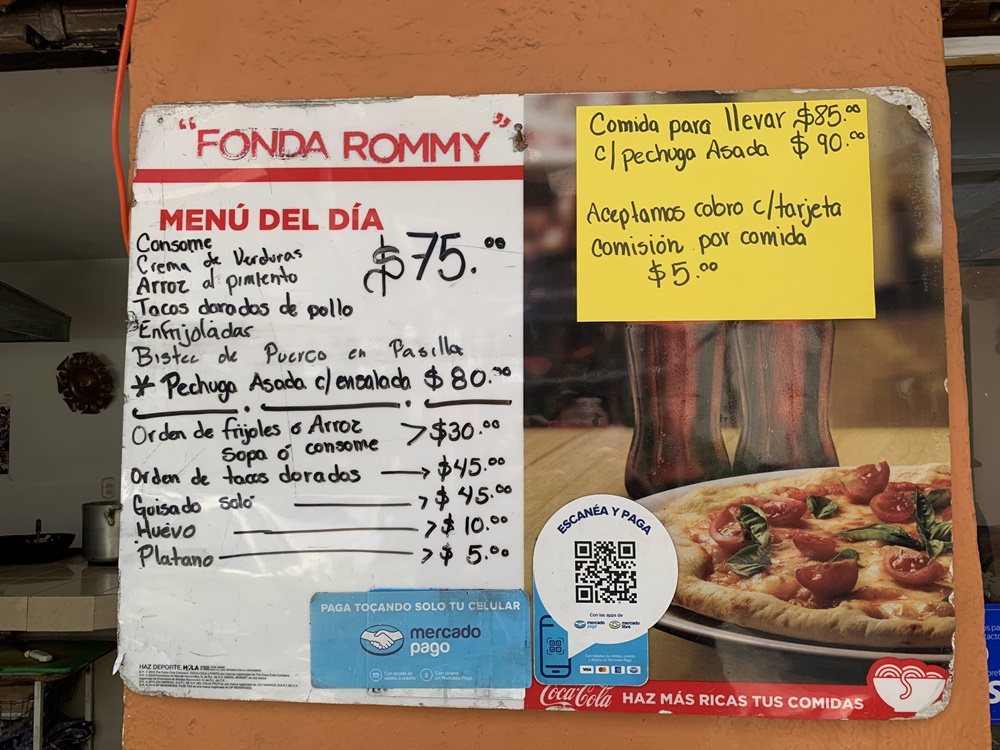 "FONDA ROMMY"
MENÚ DEL DÍA
$75.00
Consome
Crema de Verduras
Arroz al pimiento
Tacos dorados de pollo
Enfrijoladas
Bistec de Puerco en Pasilla
* Pechuga Asada c/ensalada $80.00
Orden de frijoles ó Arroz
sopa ó consome > $30.00
Orden de tacos dorados → $45.00
Guisado solo → $45.00
Huevo → $10.00
Platano → $5.00
PAGA TOCANDO SOLO TU CELULAR
mercado
pago
HAZ DEPORTE.
Comida para llevar $85.00
c/pechuga Asada $90.00
Aceptamos cobro c/tarjeta
comisión por comida
$5.00
ESCANÉA Y PAGA
Con las apps de
mercado pago mercado libre
VISA
Coca-Cola HAZ MÁS RICAS TUS COMIDAS